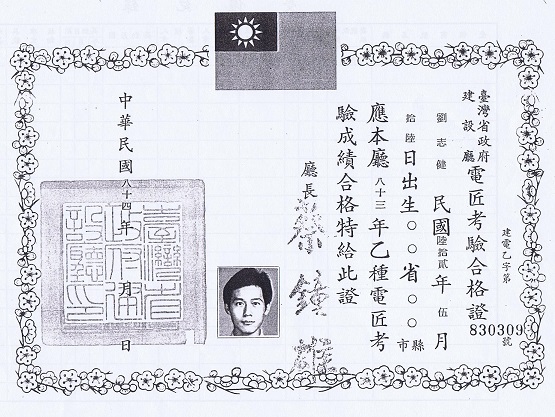 建電乙字第830309號
臺灣省政府建設廳電匠考驗合格證
劉志健 民國陸拾貳年伍月
拾陸日出生○○省○○縣市
應本廳八十三年乙種電匠考
驗成績合格特給此證
廳長 蔡鐘雄
中華民國八十四年 月 日
臺灣省
政府建
設廳印